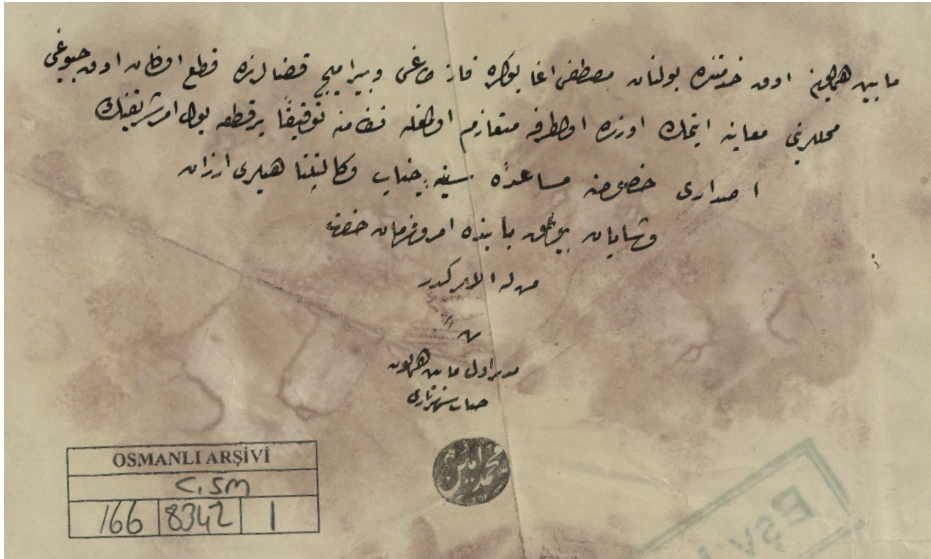 مابين همايون اوق خدمتنده بولنان مصطفى اغا بوكره قاز طاغى وبيراميج قضالرنده قطع اولنان اوق چبوغى
محللرينى معاينه ايتمك اوزره اولطرفه متعازم اولمغله نظامنه توفيقًا برقطعه يول امر شريفنك
اصدارى خصوصنه مساعدهٔ سنيهٔ جناب وكالتپناهيلرى ارزان
وشايان بيورلمق بابنده امر وفرمان حضرت
من له الامركدر
مابين همايون
جناب شهريارى
محمد امين
OSMANLI ARŞİVİ
C.SM
166 8342 1